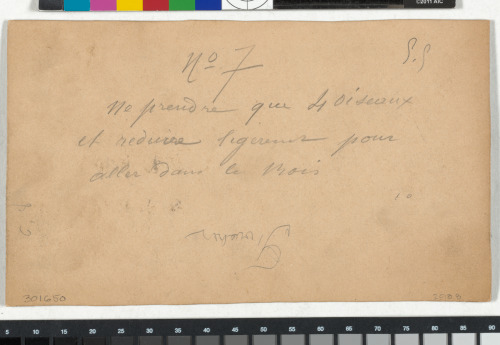 ©2011 AIC
No 7
ne prendre que 4 oiseaux
et reduire legerement pour
aller dans le bois
10
301650
5 10 15 20 25 30 35 40 45 50 55 60 65 70 75 80 85 90